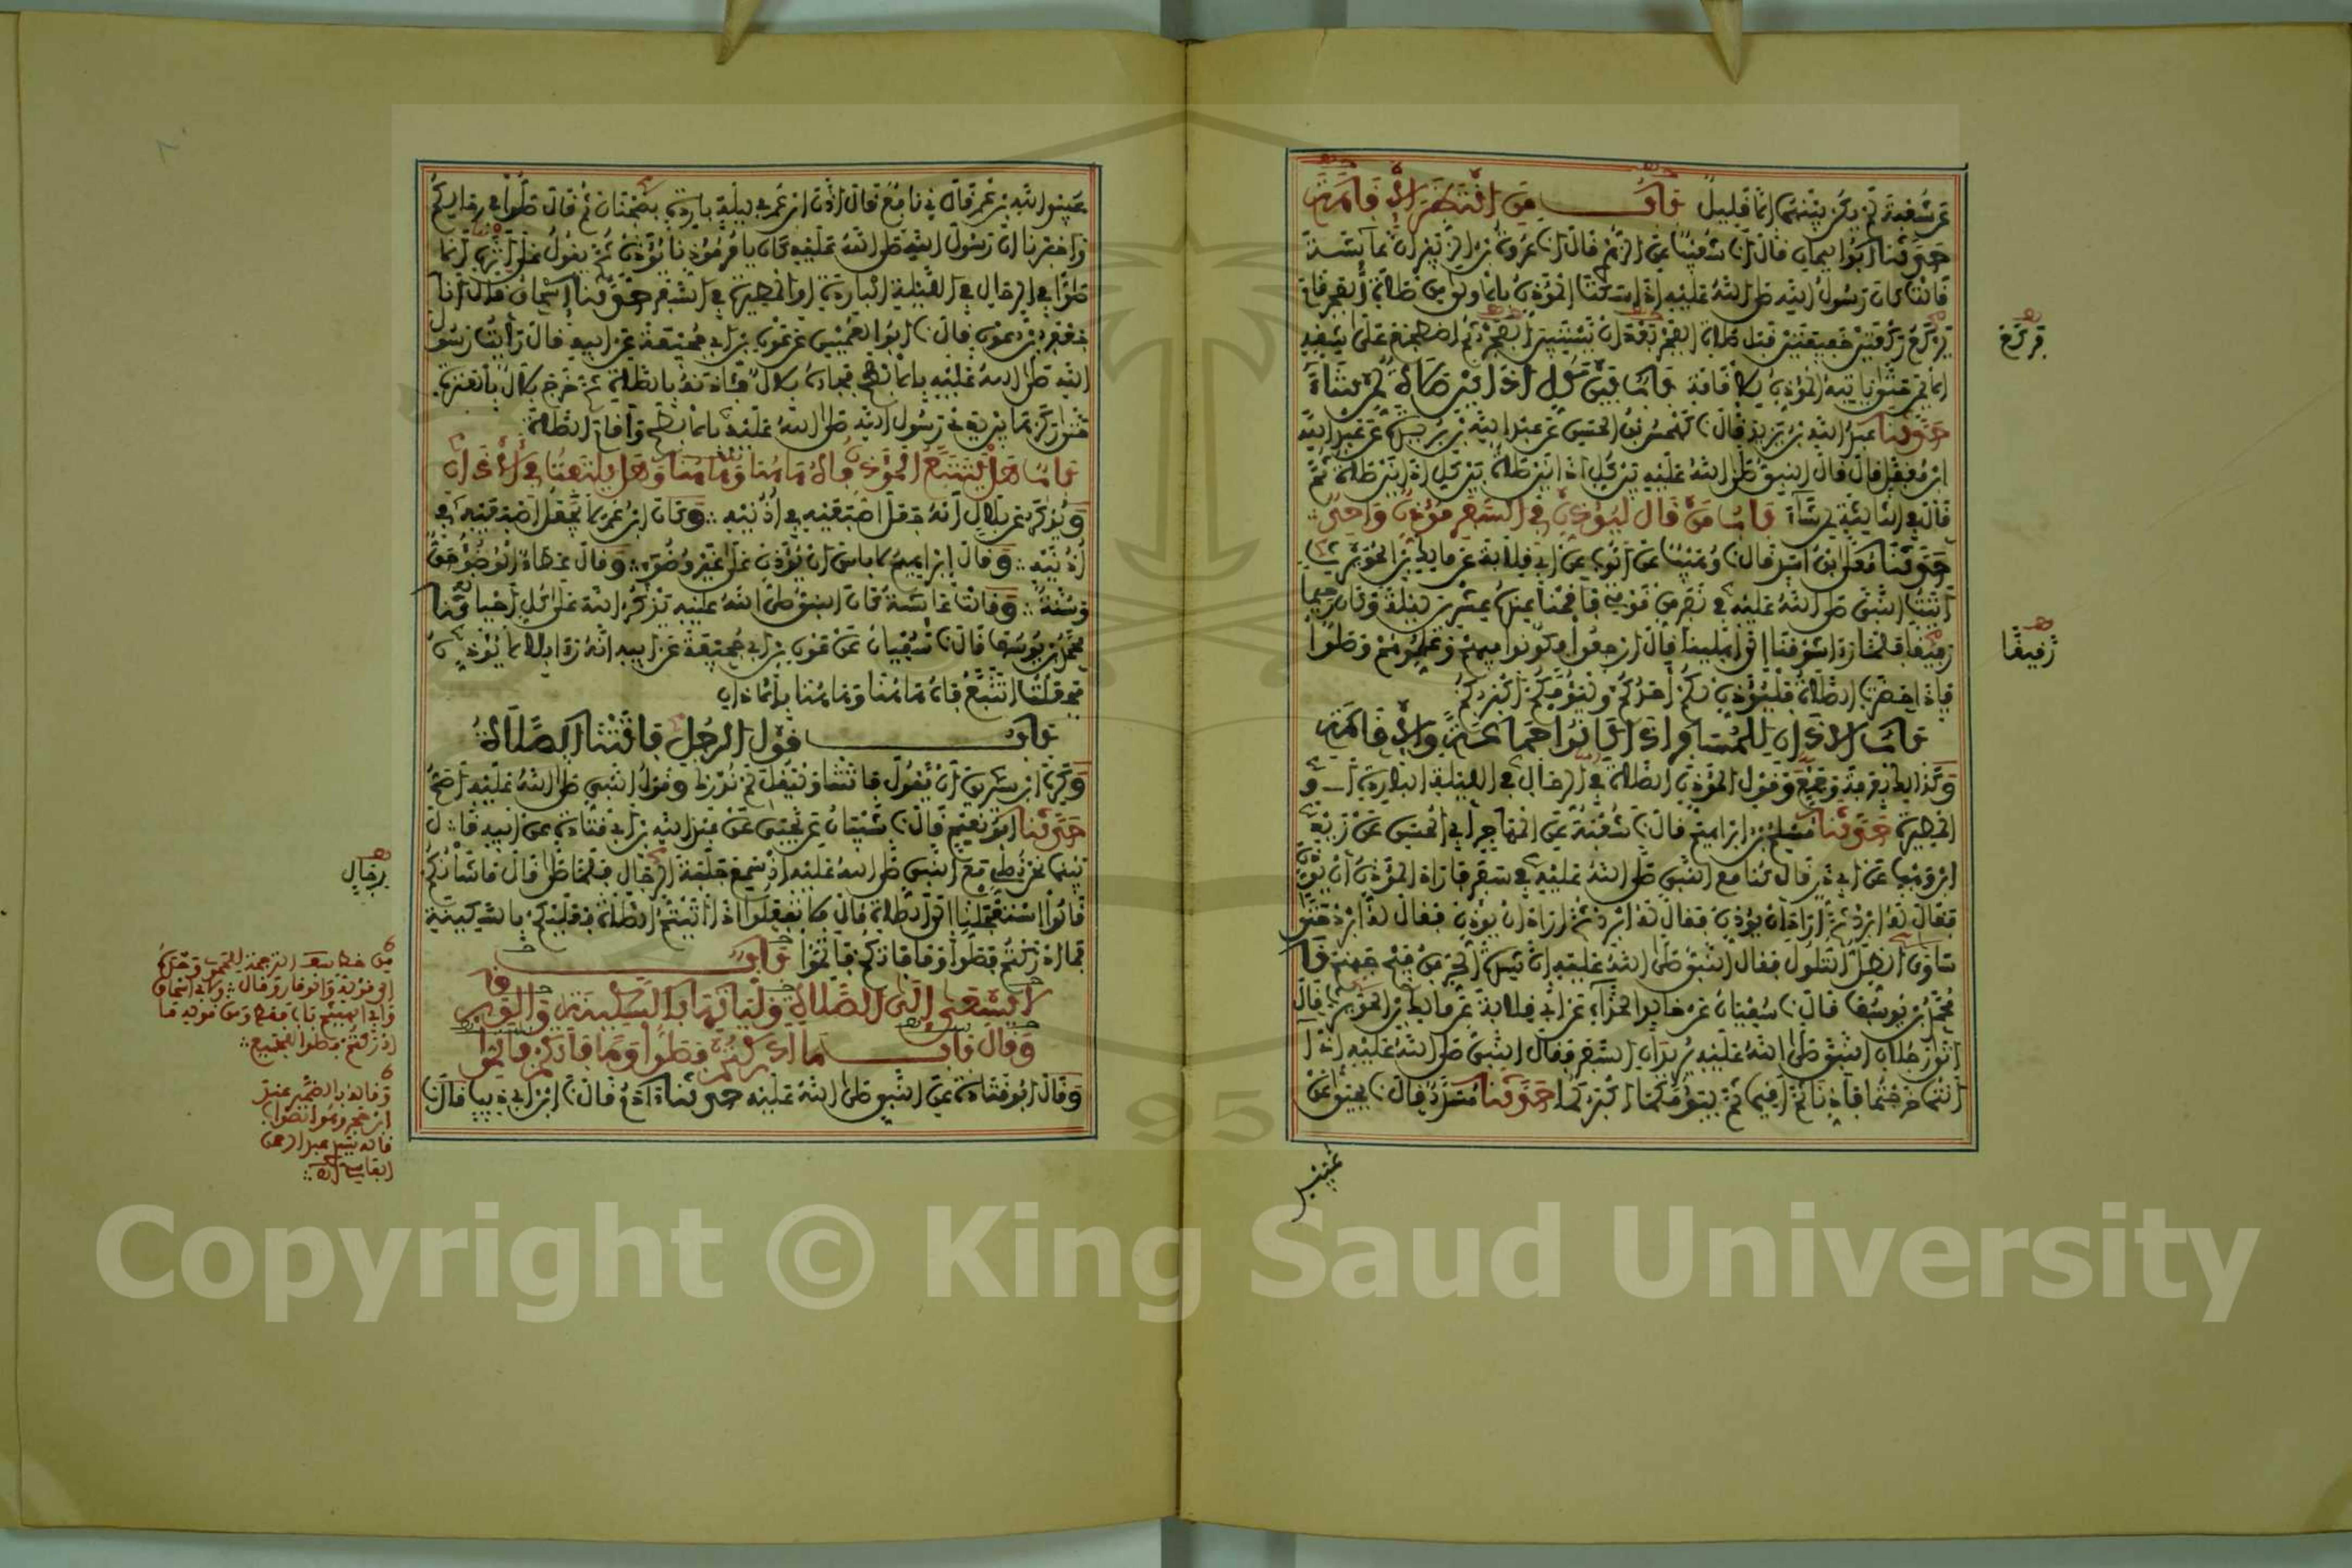 عن شعبة لم يكن بينهما إلا قليل باب من انتظر الإقامة
حدثنا أبو اليمان قال أنا شعيب عن الزهري قال أنا عروة بن الزبير أن عائشة
قالت كان رسول الله صلى الله عليه إذا سكت المؤذن بالأولى من صلاة الفجر قام
يركع ركعتين خفيفتين قبل صلاة الفجر بعد أن يستبين الفجر ثم اضطجع على شقه
الأيمن حتى يأتيه المؤذن للإقامة باب بين كل أذانين صلاة لمن شاء
حدثنا عبد الله بن يزيد قال نا كهمس بن الحسن عن عبد الله بن بريدة عن عبد الله
ابن مغفل قال قال النبي صلى الله عليه بين كل أذانين صلاة بين كل أذانين صلاة ثم
قال في الثالثة لمن شاء باب من قال ليؤذن في السفر مؤذن واحد
حدثنا معلى بن أسد قال نا وهيب عن أيوب عن أبي قلابة عن مالك بن الحويرث
أتيت النبي صلى الله عليه في نفر من قومي فأقمنا عنده عشرين ليلة وكان رحيما
رفيقا فلما رأى شوقنا إلى أهلينا قال ارجعوا فكونوا فيهم وعلموهم وصلوا
فإذا حضرت الصلاة فليؤذن لكم أحدكم وليؤمكم أكبركم
باب الأذان للمسافر إذا كانوا جماعة والإقامة
وكذلك بعرفة وجمع وقول المؤذن الصلاة في الرحال في الليلة الباردة أو
المطيرة حدثنا مسلم بن إبراهيم قال نا شعبة عن المهاجر أبي الحسن عن زيد
ابن وهب عن أبي ذر قال كنا مع النبي صلى الله عليه في سفر فأراد المؤذن أن يؤذن
فقال له أبرد ثم أراد أن يؤذن فقال له أبرد ثم أراد أن يؤذن فقال له أبرد حتى
ساوى الظل التلول فقال النبي صلى الله عليه إن شدة الحر من فيح جهنم نا
محمد بن يوسف قال نا سفيان عن خالد الحذاء عن أبي قلابة عن مالك بن الحويرث قال
أتى رجلان النبي صلى الله عليه يريدان السفر فقال النبي صلى الله عليه إذا
أنتما خرجتما فأذنا ثم أقيما ثم ليؤمكما أكبركما حدثنا مسدد قال نا يحيى عن
فركع
رفيقا
عبيد
عبيد الله بن عمر قال ني نافع قال أذن ابن عمر في ليلة باردة بضجنان ثم قال صلوا في رحالكم
وأخبرنا أن رسول الله صلى الله عليه كان يأمر مؤذنا يؤذن ثم يقول على إثره ألا
صلوا في الرحال في الليلة الباردة أو المطيرة في السفر حدثنا إسحاق قال أنا
جعفر بن عون قال نا أبو العميس عن عون بن أبي جحيفة عن أبيه قال رأيت رسول
الله صلى الله عليه بالأبطح فجاءه بلال فآذنه بالصلاة ثم خرج بلال بالعنزة
حتى ركزها بين يدي رسول الله صلى الله عليه بالأبطح وأقام الصلاة
باب هل يتتبع المؤذن فاه هاهنا وهاهنا وهل يلتفت في الأذان
ويذكر عن بلال أنه جعل إصبعيه في أذنيه وكان ابن عمر لا يجعل إصبعيه في
أذنيه وقال إبراهيم لا بأس أن يؤذن على غير وضوء وقال عطاء الوضوء حق
وسنة وقالت عائشة كان النبي صلى الله عليه يذكر الله على كل أحيانه نا
محمد بن يوسف قال نا سفيان عن عون بن أبي جحيفة عن أبيه أنه رأى بلالا يؤذن
فجعلت أتتبع فاه هاهنا وهاهنا بالأذان
باب قول الرجل فاتتنا الصلاة
وكره ابن سيرين أن يقول فاتتنا وليقل لم ندرك وقول النبي صلى الله عليه أصح
حدثنا أبو نعيم قال نا شيبان عن يحيى عن عبد الله بن أبي قتادة عن أبيه قال
بينما نحن نصلي مع النبي صلى الله عليه إذ سمع جلبة الرجال فلما صلى قال ما شأنكم
قالوا استعجلنا إلى الصلاة قال فلا تفعلوا إذا أتيتم الصلاة فعليكم بالسكينة
فما أدركتم فصلوا وما فاتكم فأتموا باب
السعي إلى الصلاة وليأتها بالسكينة والوقار
وقال باب ما أدركتم فصلوا وما فاتكم فأتموا
وقال أبو قتادة عن النبي صلى الله عليه حدثنا آدم قال نا ابن أبي ذيب قال نا
رجال